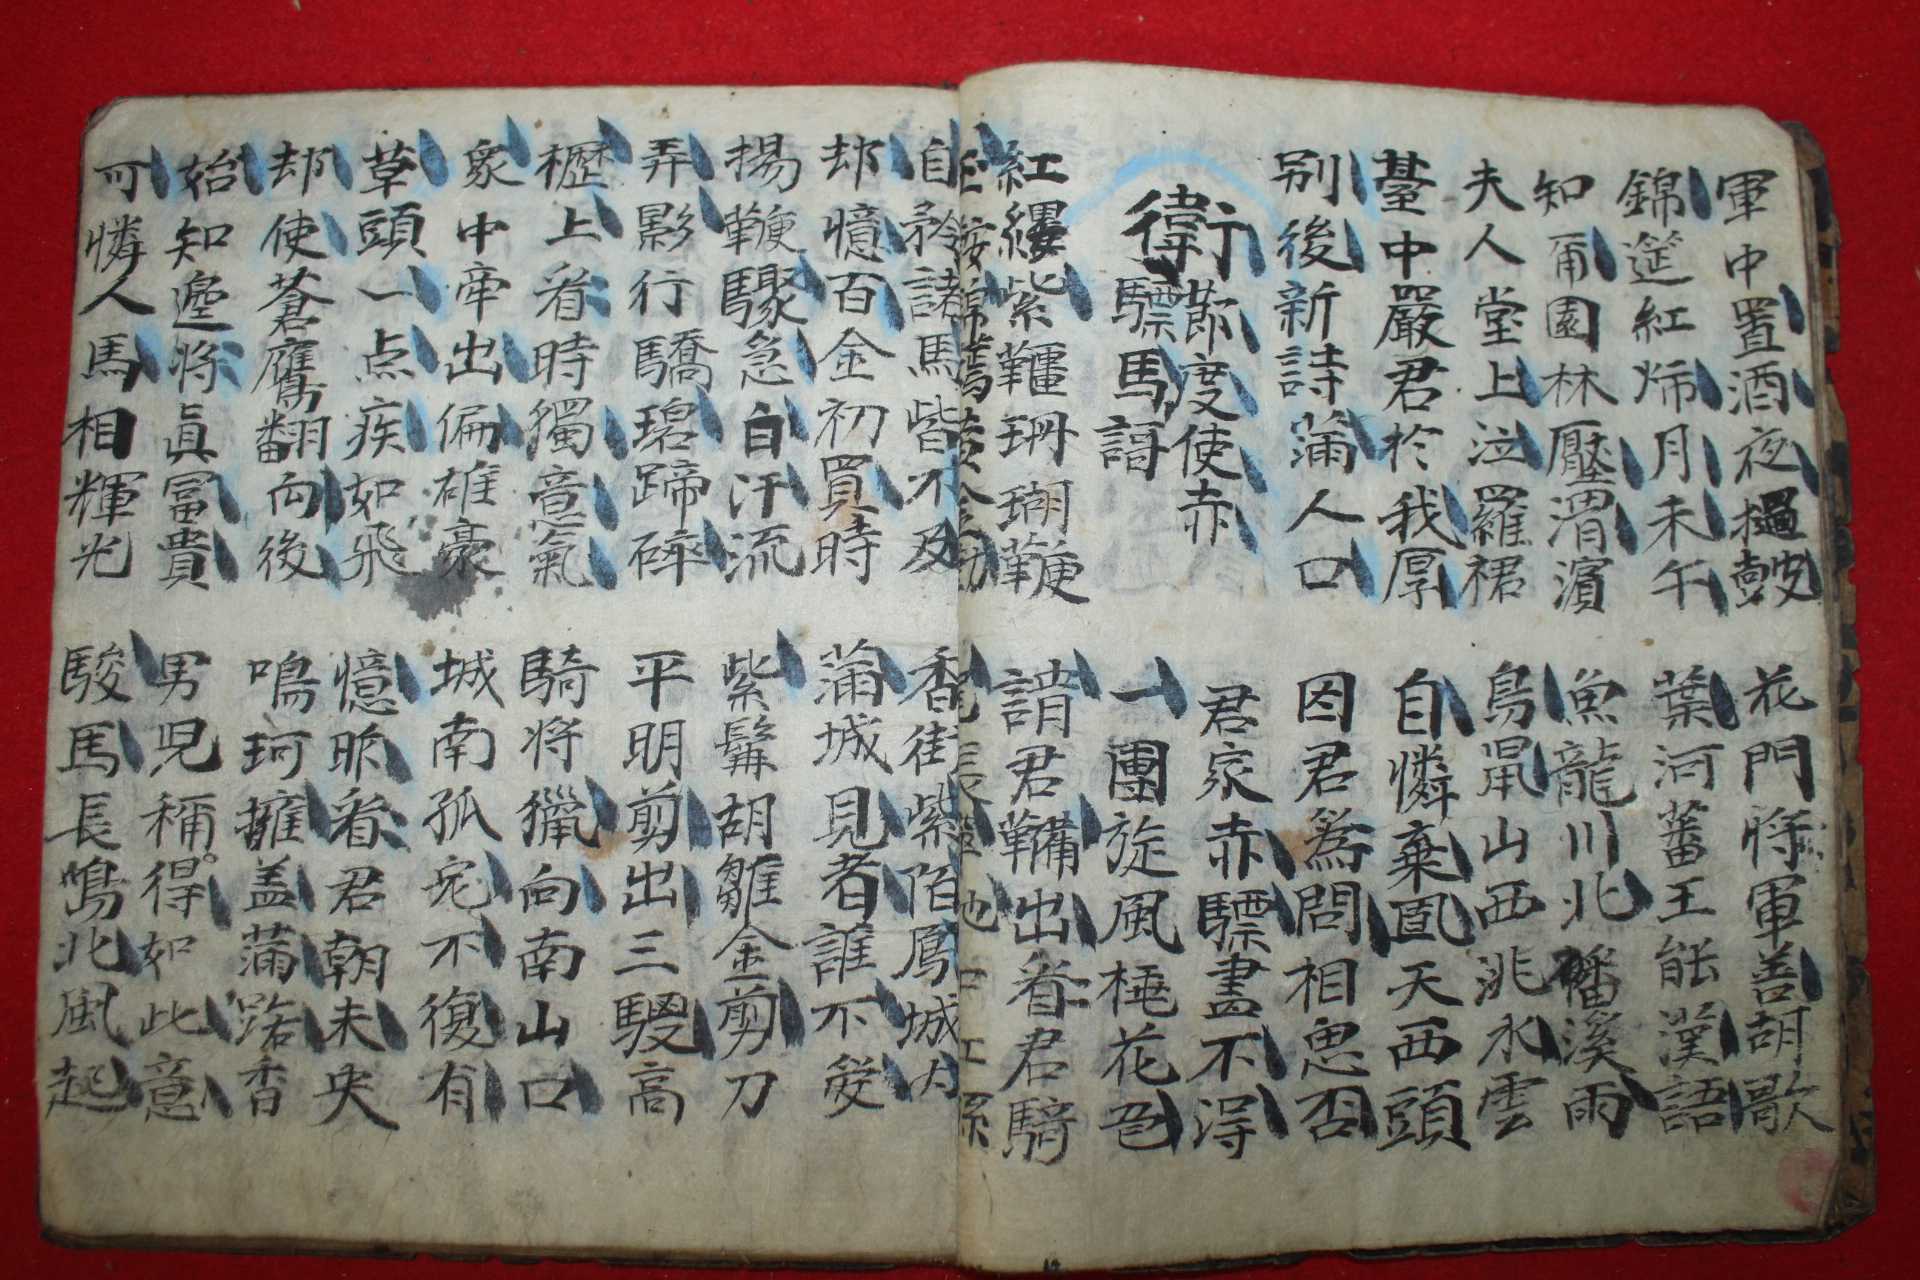 軍中置酒夜撾皷
錦筵紅烛月未午
花門將軍善胡歌
葉河蕃王能漢語
知甭園林壓渭濱
夫人堂上泣羅裙
魚龍川北磻溪雨
鳥鼠山西洮水雲
基中嚴君於我厚
別後新詩滿人口
自憐棄置天西頭
因君爲問相思否
衛節度使赤
驃馬謌
君家赤驃畫不淂
一團旋風桃花色
紅纓紫韁珊瑚鞭
玉鞍錦韉黃金勒
請君鞴出看君騎
尾長窣地如紅絲
自矜諸馬皆不及
却憶百金初買時
香街紫陌鳳城内
滿城見者誰不愛
揚鞭驟急白汗流
弄影行驕碧蹄碎
紫髯胡雛金剪刀
平明剪出三騣高
櫪上看時獨意氣
衆中牽出偏雄豪
騎將獵向南山口
城南狐兎不復有
草頭一点疾如飛
却使蒼鷹翻向後
憶昨看君朝未央
鳴珂擁盖滿路香
始知邊將眞冨貴
可憐人馬相輝光
男児稱得如此意
駿馬長鳴北風起